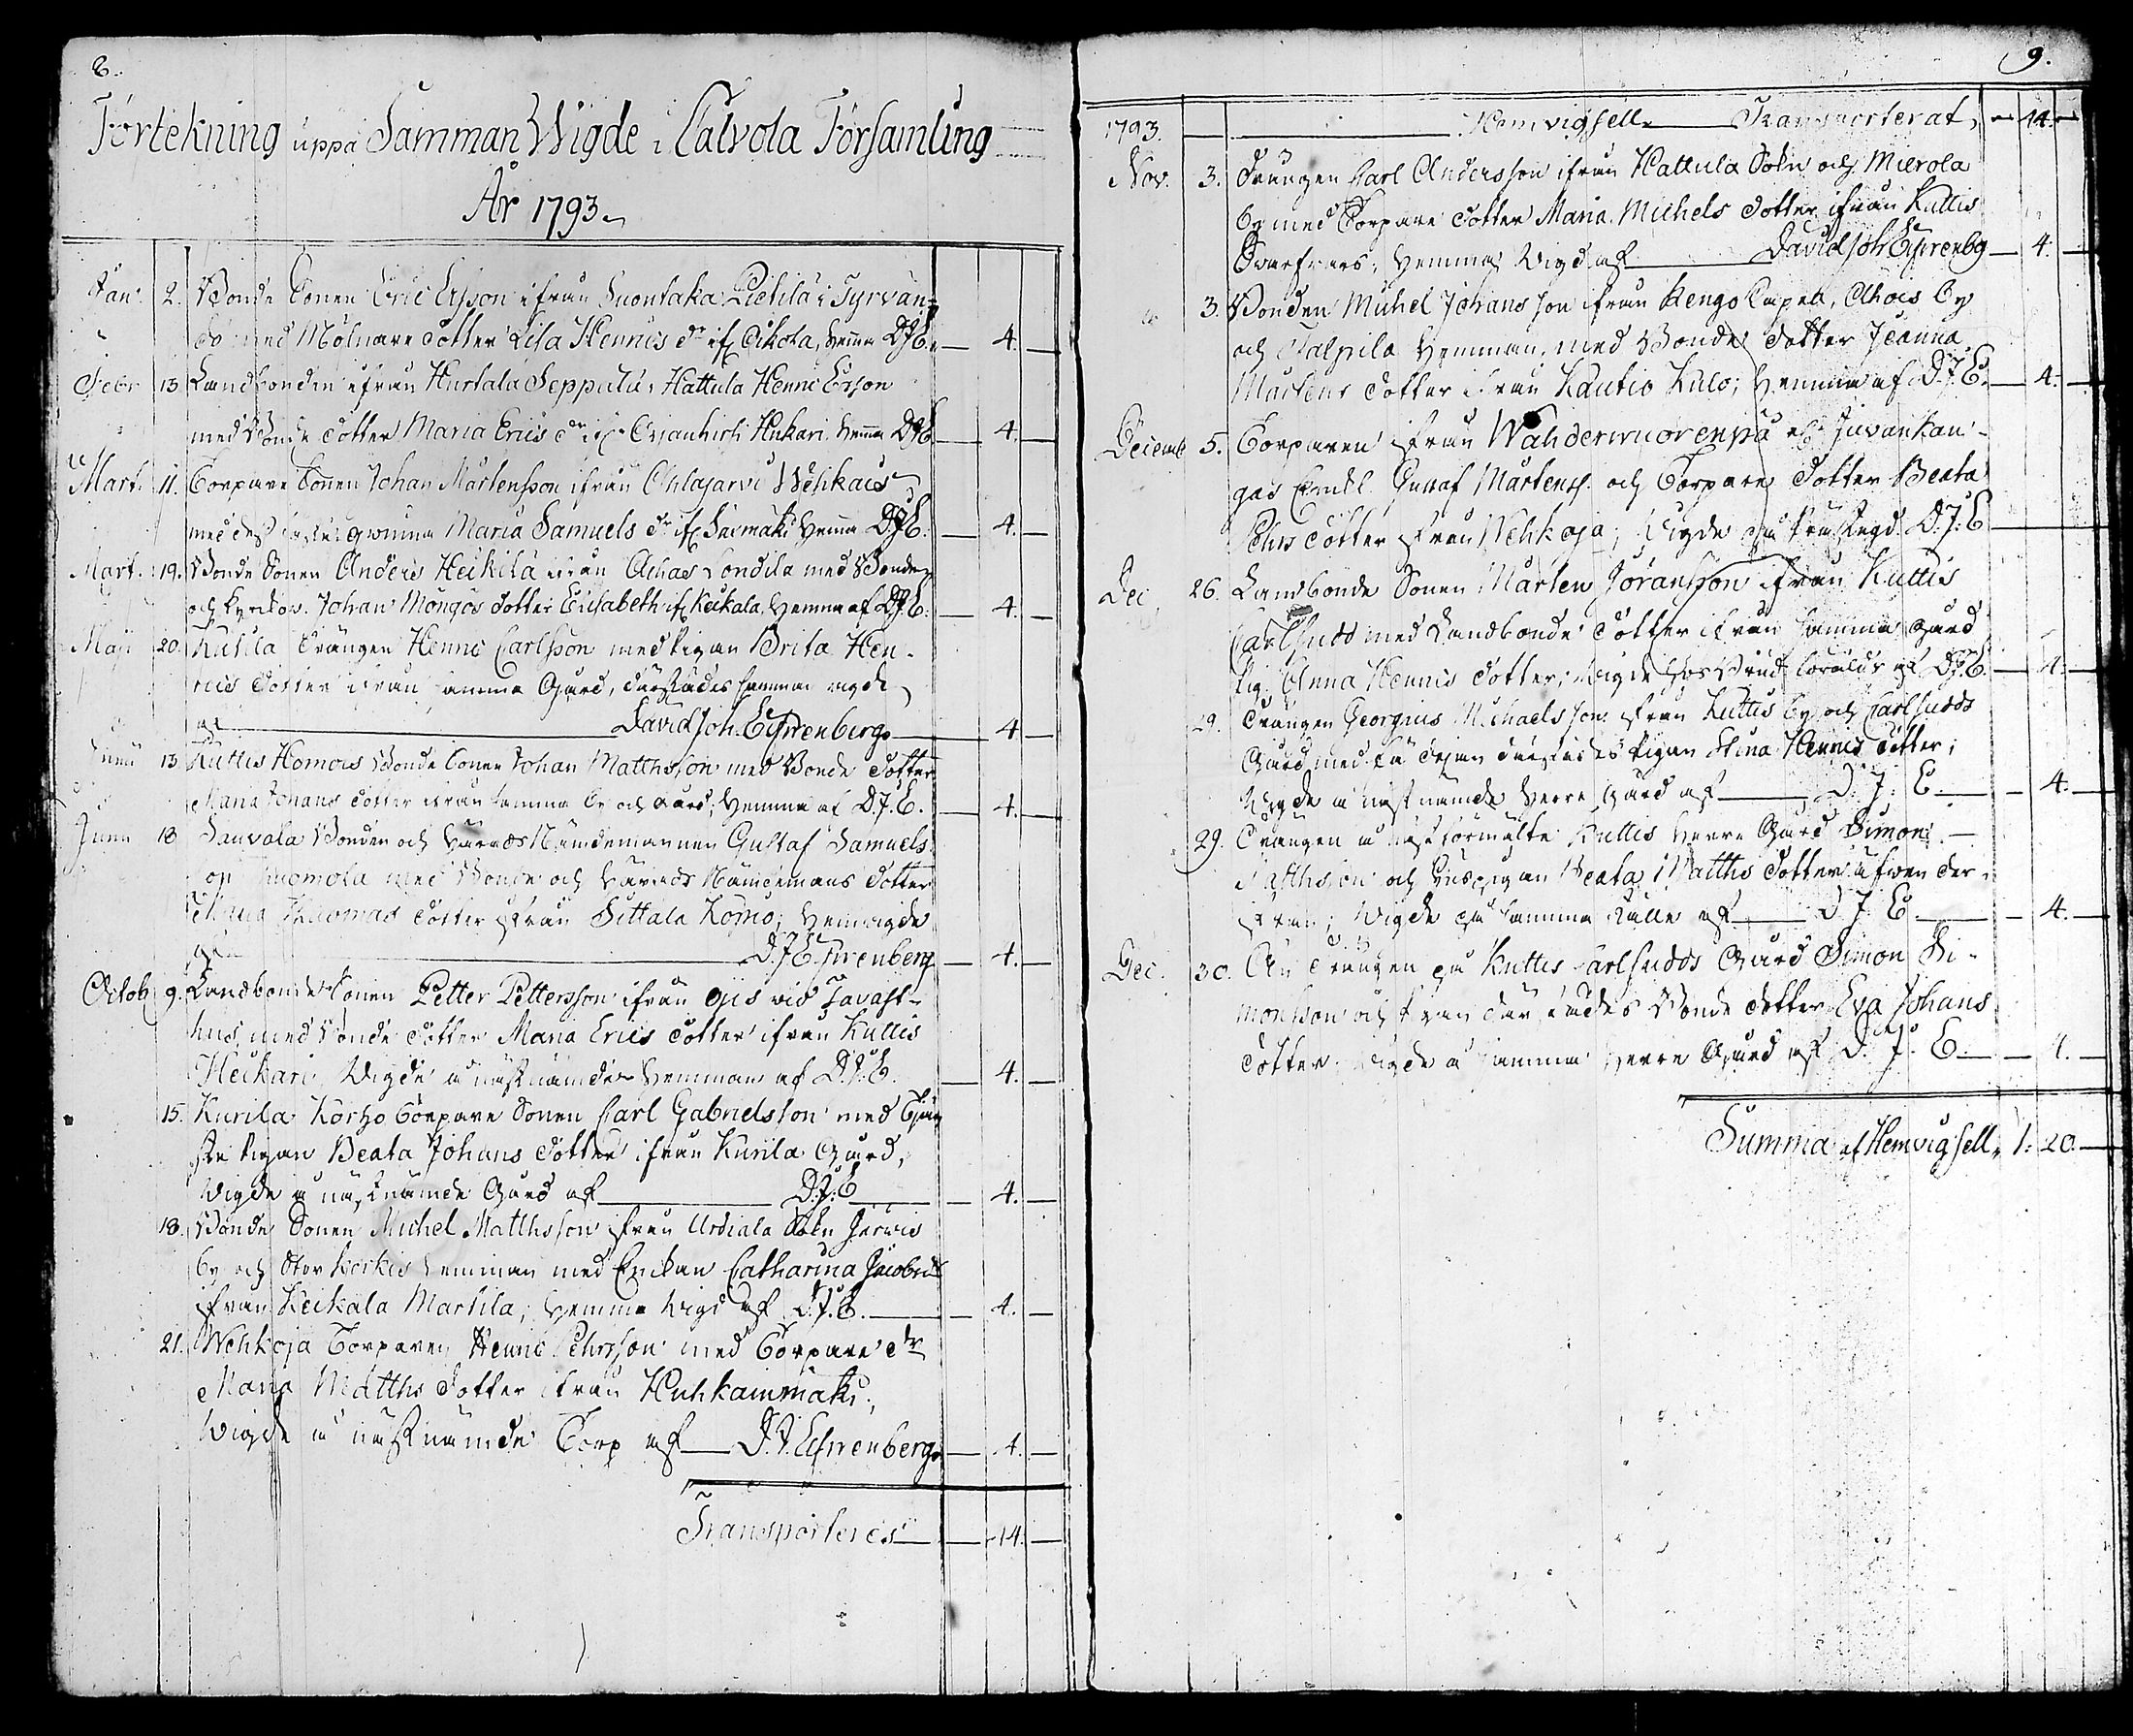 8.
Förtekning uppå Samman Wigde i Calvola Församling
År 1793.
Jan. 2. Bonde Sonen Eric Ersson ifrån Suontaka Pietilä i Tyrvän-
tö med Mölnare dotter Lisa Henrics dr if. Oikola, hema DJE. — 4. —
Febr. 13 Landbonden ifrån Hurtala Seppälä i Hattula Henric Ersson
med Bonde dotter Maria Erics dr if. Orjanhirsi Heikari hema DJE — 4. —
Mart. 11. Torpare Sonen Johan Mårtensson ifrån Ohlajärvi Wehkais
med Maria Samuels dr if. hema DJE. — 4. —
Mart. 19. Bonde Sonen Anders Heikilä ifrån Ahas med Bonde
och Kyrkov. Johan Mongos dotter Elisabeth if. Keikala, hemma af DJE. — 4. —
Maji 20. Kutila Drängen Henric Carlsson med Pigan Brita Hen-
rics dotter ifrån samma Gård, därstädes hemma vigde
af — David Joh. Ehrenberg. — 4 —
Junii 13 Kuttis Homois Bonde Sonen Johan Matthsson med Bonde dotter
Maria Johans dotter ifrån samma by och Gård; hemma af D.J.E. — 4. —
Junii 18 Sauvala Bonden och Härads Nämdemannen Gustaf Samuels-
son med Bonde och Härads Nämdemans dotter
Maria Thomas dotter ifrån Sittala Kömö; hemvigde
af — D.J. Ehrenberg — 4. —
Octob. 9. Landbonde Sonen Petter Pettersson ifrån Ojis vid Tavast-
hus, med Bonde dotter Maria Erics dotter ifrån Kuttis
Heikari, Wigde å nästnämde hemman af D.J.E. — 4. —
15. Kurila Korho Torpare Sonen Carl Gabrielsson med Tjen-
ste pigan Beata Johans dotter ifrån Kurila Gård,
Wigde å nästnämde Gård af — D.J.E — 4. —
18. Bonde Sonen Michel Matthsson ifrån Urdiala Sokn Järvis
by och Stor hemman med Enkan Catharina Jacobsdr
ifrån Keikala Martila; hemma vigd af D.J.E. — 4. —
21. Wehkoja Torparen Henric Pehrsson med Torpare dr
Maria Matths dotter ifrån Huhkainmäki,
Wigde å nästnämde Torp af — D.J. Ehrenberg. — 4. —
Transporteres — 14. —
9.
1793. — Hemvigsell. — Transporterat, — 14. —
Nov. 3. Drängen Carl Andersson ifrån Hattula Sokn och Mierola
by med Torpare dotter Maria Michels dotter ifrån Kuttis
hemma Vigd af — David Joh Ehrenbg — 4. —
3. Bonden Michel Johansson ifrån Rengo Capell, Ahois by
och Talpila hemman, med Bonde dotter Jeanna
Mårtens dotter ifrån Kautio Kulo; hemma af D.J.E. — 4. —
Decemb. 5. Torparen ifrån Wahderwuorenpä af Juvankan-
gas Enkl. Gustaf Mårtenss. och Torpare dotter Beata
Pehrs dotter ifrån Wehkoja; Wigde på D.J.E —
Dec. 26. Landbonde Sonen Mårten Jöransson ifrån Kuttis
Carlsudd med Landbonde dotter ifrån samma gård
Pig. Anna Henrics dotter; Wigde hos af DJE. — 4. —
29. Drängen Georgius Michaelsson ifrån Kuttis by och Carlsudds
Gård med därstädes Pigan Stina Henrics dotter;
Wigde å nästnämde Herre Gård af — D. J. E — 4. —
29. Drängen å näst förmälte Kuttis Herre Gård Simon
Matthsson och Huspigan Beata Matths dotter äfwen der-
ifrån; Wigde på samma ställe af — D. J. E — 4. —
Dec. 30. Än Drängen på Kuttis Carlsudds Gård Simon Si-
monsson och Pigan därstädes Bonde dotter Eva Johans
dotter Wigde å samma Herre Gård af D. J. E. — 4. —
Summa af Hemvigsell. 1. 20. —